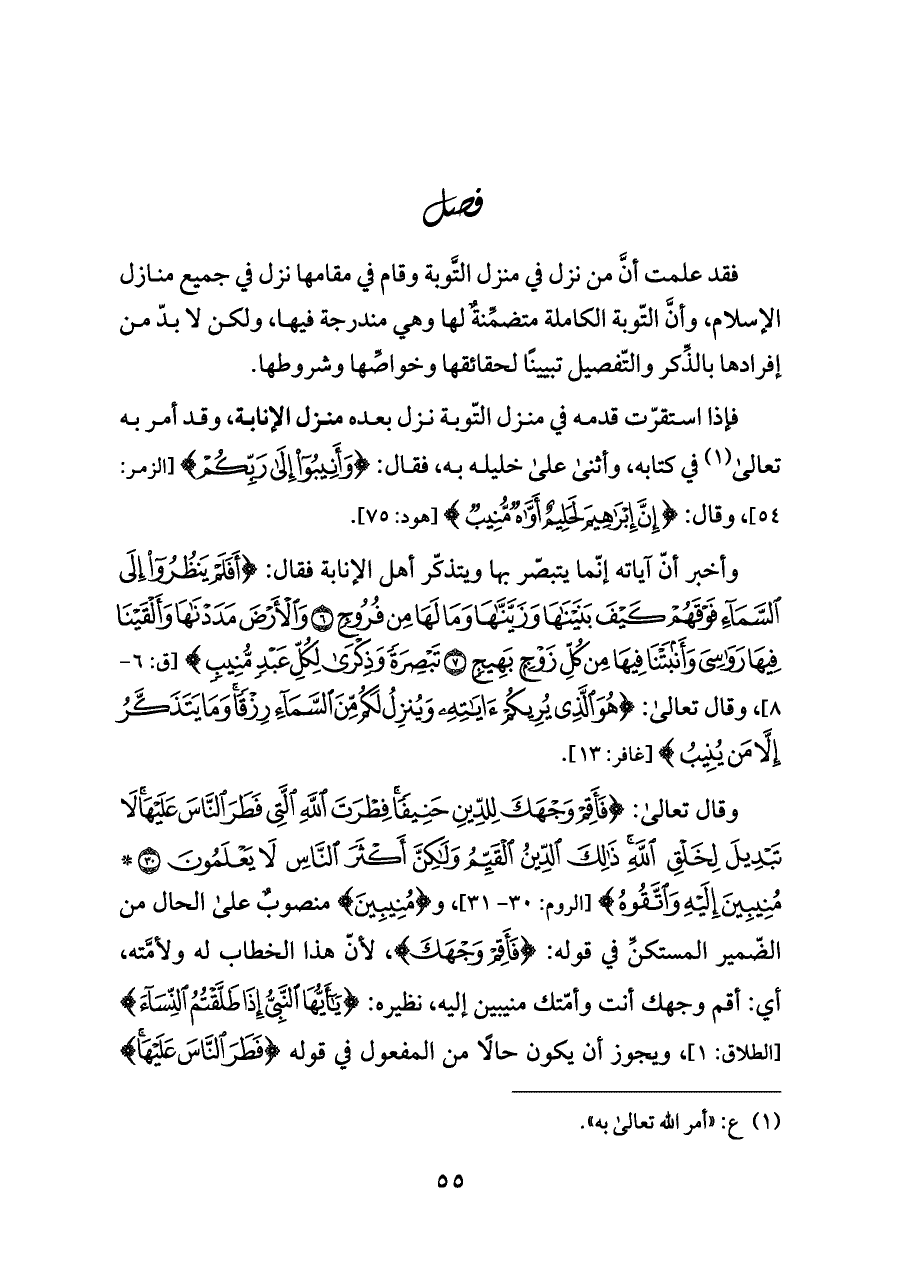 فصل
فقد علمت أنَّ من نزل في منزل التَّوبة وقام في مقامها نزل في جميع منـازل
الإسلام، وأنَّ التّوبة الكاملة متضمِّنةٌ لها وهي مندرجة فيهـا، ولكـن لا بـدّ مـن
إفرادها بالذِّكر والتّفصيل تبيينًا لحقائقها وخواصِّها وشروطها.
فإذا استقرّت قدمـه في منـزل التّوبـة نـزل بعـده منـزل الإنابـة، وقـد أمـر بـه
تعالىٰ(١) في كتابه، وأثنىٰ علىٰ خليلـه بـه، فقـال: ﴿وَأَنِيبُوٓاْ إِلَىٰ رَبِّكُمۡ﴾ [الزمر:
٥٤]، وقال: ﴿إِنَّ إِبۡرَٰهِيمَ لَحَلِيمٌ أَوَّٰهٌ مُّنِيبٌ﴾ [هود: ٧٥].
وأخبر أنّ آياته إنّما يتبصّر بها ويتذكّر أهل الإنابة فقال: ﴿أَفَلَمۡ يَنظُرُوٓاْ إِلَى
ٱلسَّمَآءِ فَوۡقَهُمۡ كَيۡفَ بَنَيۡنَٰهَا وَزَيَّنَّٰهَا وَمَا لَهَا مِن فُرُوجٖ ٦ وَٱلۡأَرۡضَ مَدَدۡنَٰهَا وَأَلۡقَيۡنَا
فِيهَا رَوَٰسِيَ وَأَنۢبَتۡنَا فِيهَا مِن كُلِّ زَوۡجِۭ بَهِيجٖ ٧ تَبۡصِرَةٗ وَذِكۡرَىٰ لِكُلِّ عَبۡدٖ مُّنِيبٖ﴾ [ق: ٦-
٨]، وقال تعالىٰ: ﴿هُوَ ٱلَّذِي يُرِيكُمۡ ءَايَٰتِهِۦ وَيُنَزِّلُ لَكُم مِّنَ ٱلسَّمَآءِ رِزۡقٗاۚ وَمَا يَتَذَكَّرُ
إِلَّا مَن يُنِيبُ﴾ [غافر: ١٣].
وقال تعالىٰ: ﴿فَأَقِمۡ وَجۡهَكَ لِلدِّينِ حَنِيفٗاۚ فِطۡرَتَ ٱللَّهِ ٱلَّتِي فَطَرَ ٱلنَّاسَ عَلَيۡهَاۚ لَا
تَبۡدِيلَ لِخَلۡقِ ٱللَّهِۚ ذَٰلِكَ ٱلدِّينُ ٱلۡقَيِّمُ وَلَٰكِنَّ أَكۡثَرَ ٱلنَّاسِ لَا يَعۡلَمُونَ ٣٠ *
مُنِيبِينَ إِلَيۡهِ وَٱتَّقُوهُ﴾ [الروم: ٣٠- ٣١]، و﴿مُنِيبِينَ﴾ منصوبٌ علىٰ الحال من
الضّمير المستكنِّ في قوله: ﴿فَأَقِمۡ وَجۡهَكَ﴾، لأنّ هذا الخطاب له ولأمّته،
أي: أقم وجهك أنت وأمّتك منيبين إليه، نظيره: ﴿يَٰٓأَيُّهَا ٱلنَّبِيُّ إِذَا طَلَّقۡتُمُ ٱلنِّسَآءَ﴾
[الطلاق: ١]، ويجوز أن يكون حالًا من المفعول في قوله ﴿فَطَرَ ٱلنَّاسَ عَلَيۡهَاۚ﴾
(١) ع: «أمر الله تعالىٰ به».
٥٥